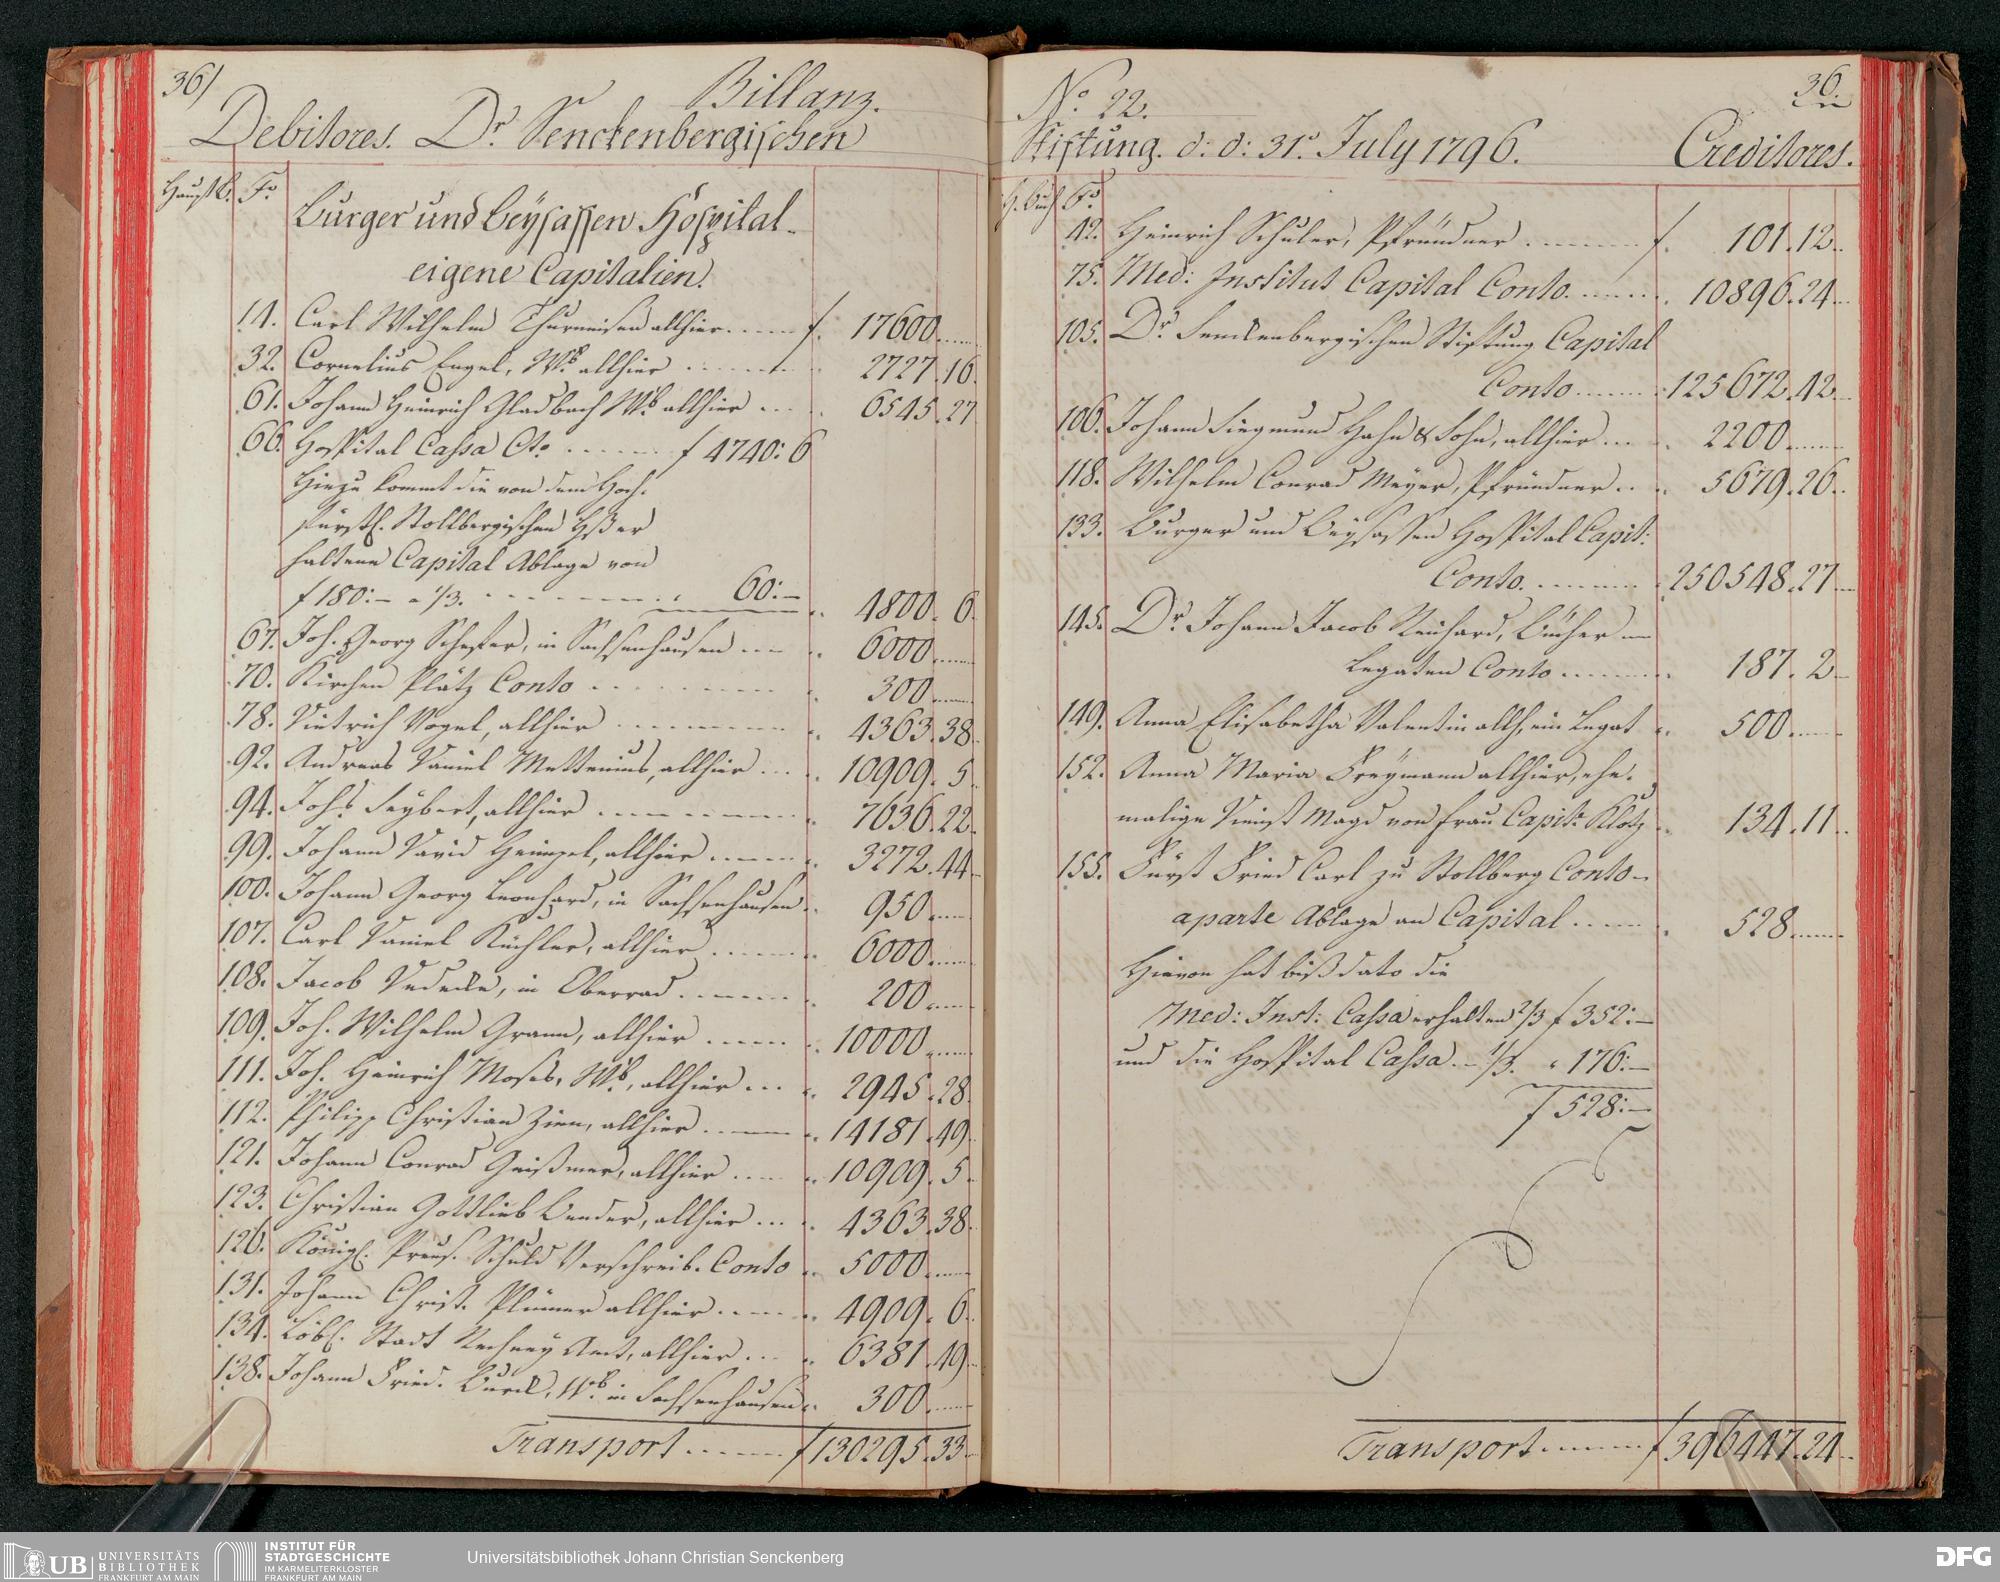 36/
Billanz.
Debitores. Dr. Senckenbergischen
Hauptb. Fo.
Burger und Beysassen Hospital-
eigene Capitalien.
11. Carl Wilhelm Thurneisen allhier f. 17600
32. Cornelius Engel, Wb. allhier 2727.16.
61. Johann Heinrich Gladbach Wb allhier 6545.27
66. Hospital Cassa Cto. f 4740:6
Hiezu kommt die von dem Hoch-
fürstl. Stollbergischen Hß er
haltene Capital Ablage von
f 180:— a 1/3. 60:— 4800.6.
67. Joh. Georg Schefer, in Sachsenhausen 6000
70. Kirchen Plätz Conto 300
78. Dietrich Vogel, allhier 4363.38.
92. Andreas Daniel Mettenius, allhier 10909.5
94. Johs Seybert, allhier 7636.22.
99. Johann David Heimpel, allhier 3272.44
100. Johann Georg Leonhard, in Sachsenhausen 950
107. Carl Daniel Küchler, allhier 6000
108. Jacob Dedecke, in Oberrad 200
109. Joh. Wilhelm Gramm, allhier 10000
111. Joh. Heinrich Moses, Wb, allhier 2945.28
112. Philipp Christian Zien, allhier 14181.49.
121. Johann Conrad Geißmer, allhier 10909.5
123. Christian Gottlieb Bender, allhier 4363.38.
126. Königl. Preus. Schuld Verschreib. Conto 5000
131. Johann Christ. Plümer allhier 4909.6
134. Löbl. Stadt Rechney Amt, allhier 6381.49
138. Johann Fried. Burck, Wb in Sachsenhausen 300
Transport f 130295.33
36.
No. 22.
Stiftung. d: d: 31. July 1796. Creditores.
H. Buch Fo.
42. Heinrich Schuler, Pfründner f. 101.12.
75. Med: Institut Capital Conto. 10896.24
105. Dr. Senckenbergischen Stiftung Capital
Conto 125672.42
106. Johann Siegmund Hahn & Sohn, allhier 2200
118. Wilhelm Conrad Meyer, Pfründner 5679.26.
133. Burger und Beysassen Hospital Capit:
Conto. 250548.27
145. Dr. Johann Jacob Reinhard, Bücher
Legaten Conto 187.2
149. Anna Elisabetha Valentin allh, ein Legat 500
152. Anna Maria Freymann allhier, ehe-
malige Dienst Magd von Frau Capit. Klotz 134.11
155. Fürst Fried Carl zu Stollberg Conto-
aparte Ablage an Capital 528
Hievon hat biß dato die
Med: Inst: Cassa erhalten 2/3 f 352:—
und die Hospital Cassa 1/3. " 176:—
f 528:—
Transport f 396447.24
UB UNIVERSITÄTS
BIBLIOTHEK
FRANKFURT AM MAIN
INSTITUT FÜR
STADTGESCHICHTE
IM KARMELITERKLOSTER
FRANKFURT AM MAIN
Universitätsbibliothek Johann Christian Senckenberg
DFG